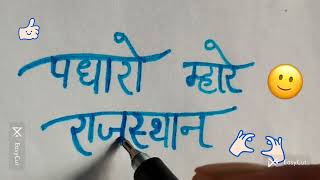 पधारो म्हारे
राजस्थान
EasyCut
EasyCut